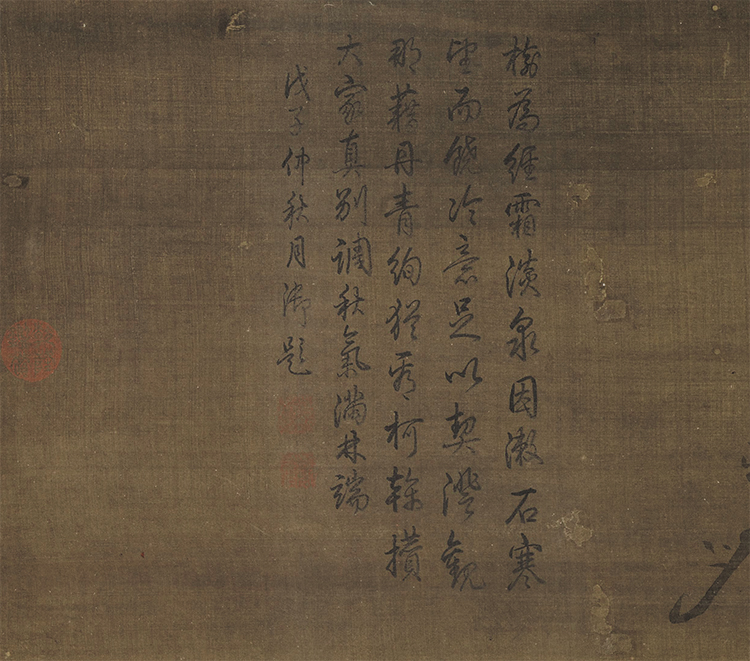 樹為經霜淡泉因漱石寒
望而饒冷意足以契澄觀
那藉丹青絢猶看柯幹攢
大家真別調秋氣滿林端
戊子仲秋月御題